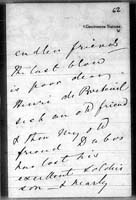 62
endless friends
the last blow
is poor dear
Henri de Breteuil
such an old friend
& then my old
friend Dubos
has lost his
excellent soldier
son — & nearly